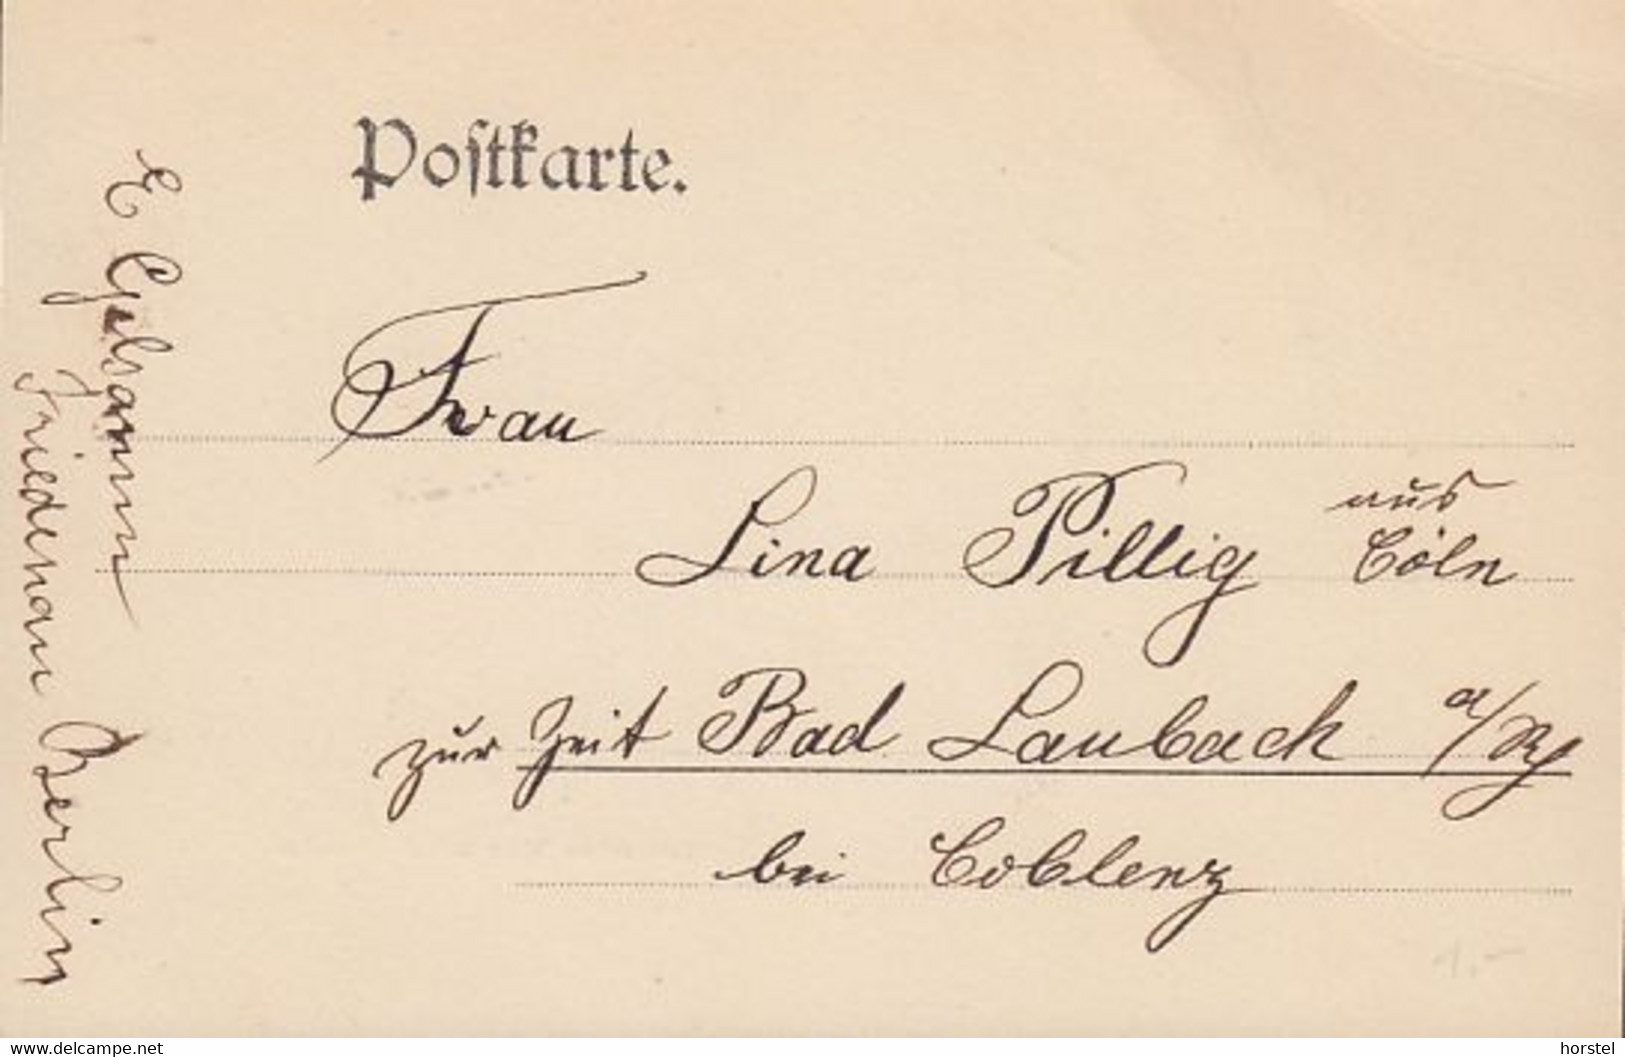 Postkarte.
Frau
Lina Pillig aus
Cöln
zur Zeit Bad Laubach a/Rh
bei Coblenz
E
Friedenau Berlin
www.delcampe.net
horstel